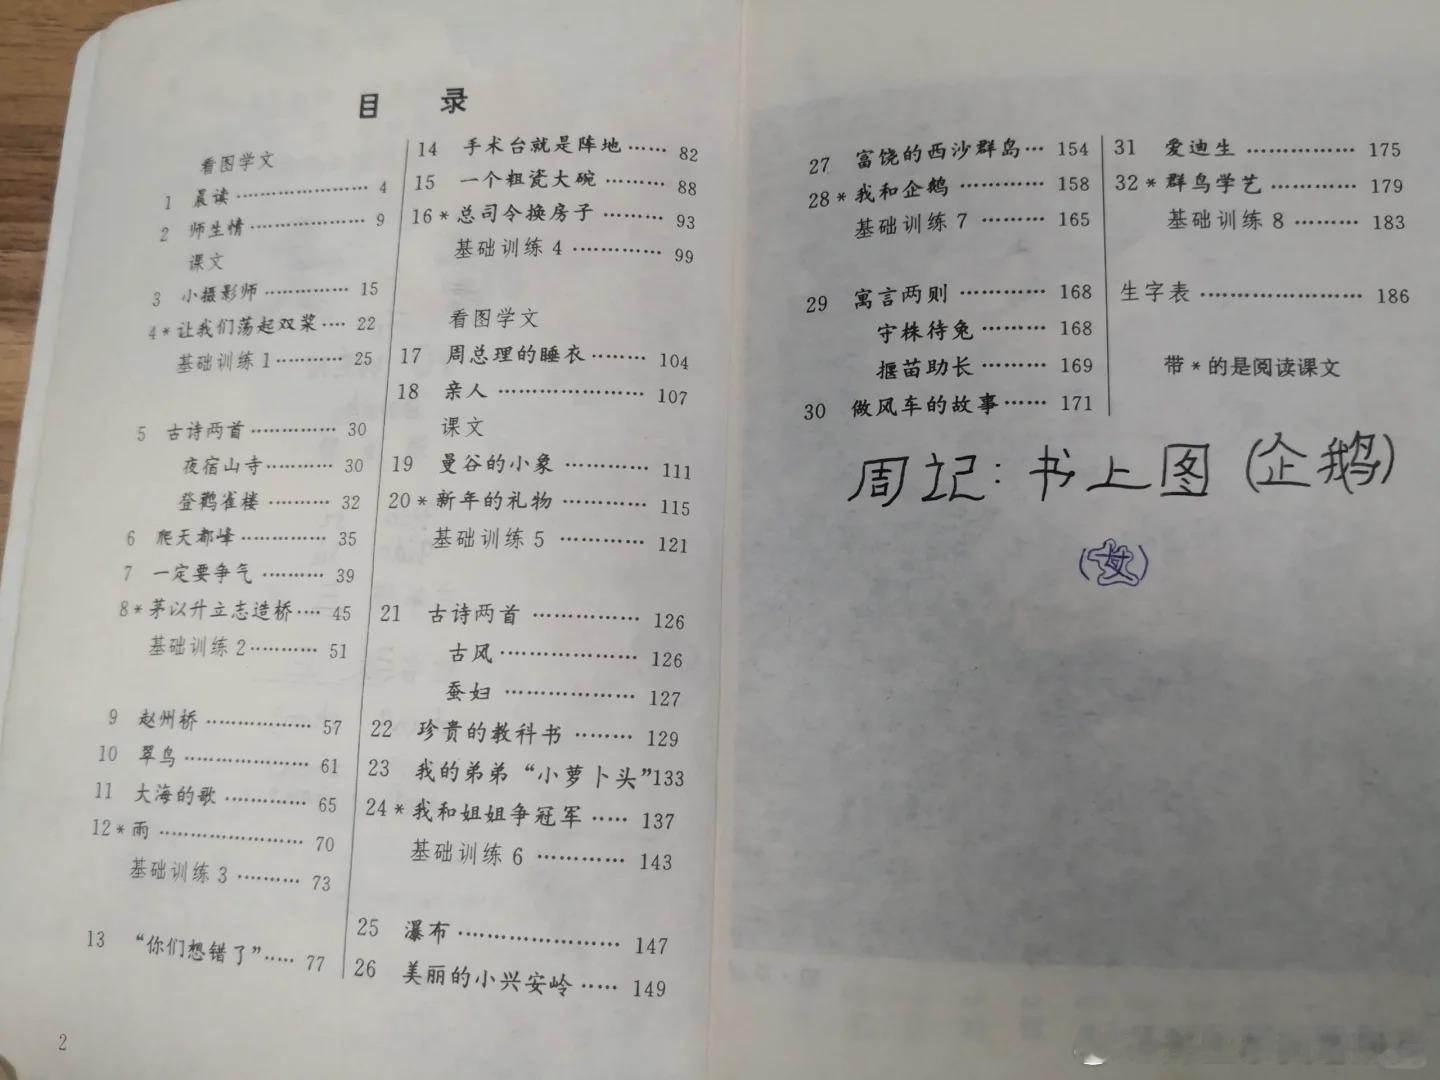 目 录
看图学文
1 晨读 …………………… 4
2 师生情 ……………… 9
课文
3 小摄影师 …………… 15
4* 让我们荡起双桨 …… 22
基础训练1 ………… 25
5 古诗两首 …………… 30
夜宿山寺 ………… 30
登鹳雀楼 ………… 32
6 爬天都峰 …………… 35
7 一定要争气 ………… 39
8* 茅以升立志造桥 …… 45
基础训练2 ………… 51
9 赵州桥 ……………… 57
10 翠鸟 ………………… 61
11 大海的歌 …………… 65
12* 雨 …………………… 70
基础训练3 ………… 73
13 “你们想错了” ……… 77
14 手术台就是阵地 …… 82
15 一个粗瓷大碗 ……… 88
16* 总司令换房子 ……… 93
基础训练4 ………… 99
看图学文
17 周总理的睡衣 ……… 104
18 亲人 ………………… 107
课文
19 曼谷的小象 ………… 111
20* 新年的礼物 ………… 115
基础训练5 ………… 121
21 古诗两首 …………… 126
古风 ……………… 126
蚕妇 ……………… 127
22 珍贵的教科书 ……… 129
23 我的弟弟“小萝卜头” 133
24* 我和姐姐争冠军 …… 137
基础训练6 ………… 143
25 瀑布 ………………… 147
26 美丽的小兴安岭 …… 149
2
27 富饶的西沙群岛 …… 154
28* 我和企鹅 …………… 158
基础训练7 ………… 165
29 寓言两则 …………… 168
守株待兔 ………… 168
揠苗助长 ………… 169
30 做风车的故事 ……… 171
31 爱迪生 ……………… 175
32* 群鸟学艺 …………… 179
基础训练8 ………… 183
生字表 ………………… 186
带*的是阅读课文
周记:书上图(企鹅)